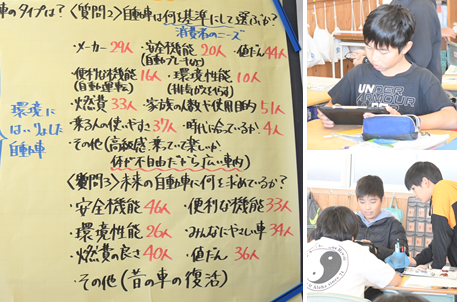 車のタイプは?〈質問2〉自動車は何を基準にして選ぶか?
消費者のニーズ
・メーカー 29人 ・安全機能 20人 ・値だん 44人
(自動ブレーキなど)
・便利な機能 16人 ・環境性能 10人
(自動運転など)
・燃費 33人 ・家族の人数や使用目的 51人
・乗る人の使いやすさ 37人 ・時代に合っているか 4人
・その他(高級感、乗っていて楽しいか
体が不自由だから広い車内)
〈質問3〉未来の自動車に何を求めているか?
・安全機能 46人 ・便利な機能 33人
・環境性能 26人 ・みんなにやさしい車 34人
・燃費の良さ 40人 ・値だん 36人
・その他(昔の車の復活)
環境に
自動車
UNDER ARMOUR